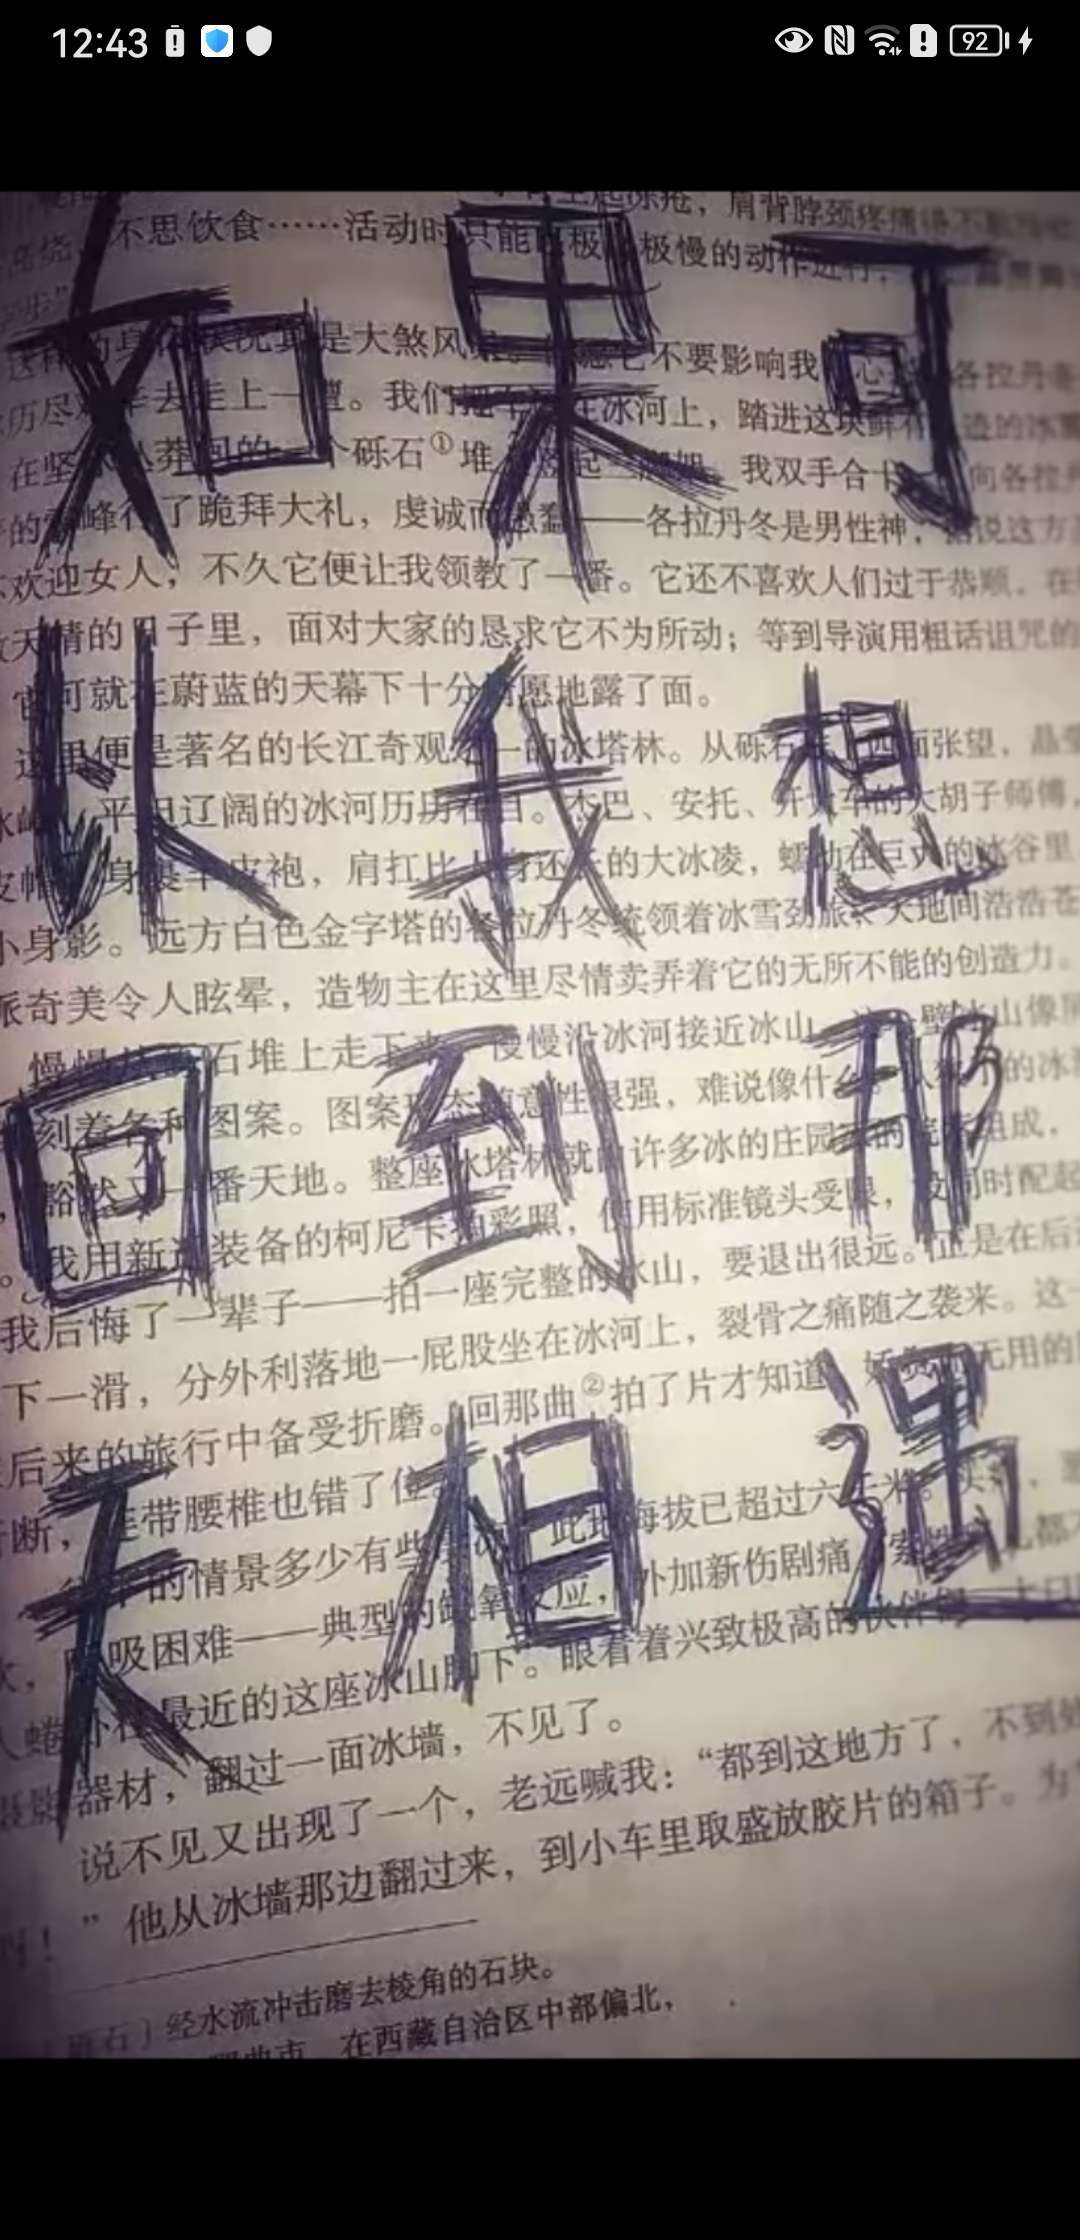 12:43
92
不思饮食……活动时只能
极慢的动作进行
是大煞风
不要影响我
去走上一遭。我们
在冰河上，踏进这块
砾石①堆
我双手合十
了跪拜大礼，虔诚而愚蠢——各拉丹冬是男性神，据说这方
欢迎女人，不久它便让我领教了一番。它还不喜欢人们过于恭顺，在
天晴的日子里，面对大家的恳求它不为所动；等到导演用粗话诅咒的
可就在蔚蓝的天幕下十分
愿地露了面。
这里便是著名的长江奇观之一的冰塔林。从砾石堆上四面张望，晶
平坦辽阔的冰河历历在目。杰巴、安托、开大车的大胡子师傅，
身裹羊皮袍，肩扛比人身还长的大冰凌，蠕动在巨大的冰谷里
小身影。远方白色金字塔的各拉丹冬统领着冰雪劲旅，天地间浩浩苍
派奇美令人眩晕，造物主在这里尽情卖弄着它的无所不能的创造力。
慢慢从砾石堆上走下来，慢慢沿冰河接近冰山。这一壁冰山像屏
刻着各种图案。图案形态随意性很强，难说像什么。
的冰
豁然又一番天地。整座冰塔林就由许多冰的庄园
组成，
我用新
装备的柯尼卡拍彩照，使用标准镜头受限，没同时配起
我后悔了一辈子——拍一座完整的冰山，要退出很远。正是在后
下一滑，分外利落地一屁股坐在冰河上，裂骨之痛随之袭来。这一
后来的旅行中备受折磨。回那曲②拍了片才知道，
无用的
断，连带腰椎也错了位。
的情景多少有些
此地海拔已超过六千米。
呼吸困难——典型的缺氧反应，外加新伤剧痛，索性
都
人蜷卧在最近的这座冰山脚下。眼看着兴致极高的伙伴们
器材，翻过一面冰墙，不见了。
说不见又出现了一个，老远喊我：“都到这地方了，不到处
”他从冰墙那边翻过来，到小车里取盛放胶片的箱子。为
〔砾石〕经水流冲击磨去棱角的石块。
在西藏自治区中部偏北，
如果可
以我想
回到那
天相遇